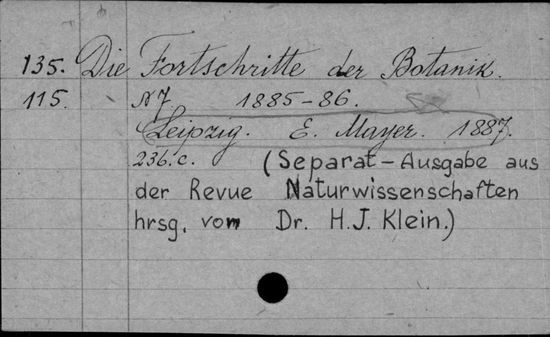 135. Die Fortschritte der Botanik.
115. N7 1885-86.
Leipzig. E. Mayer. 1887.
236. c. (Separat-Ausgabe aus
der Revue Naturwissenschaften
hrsg. von Dr. H.J. Klein.)